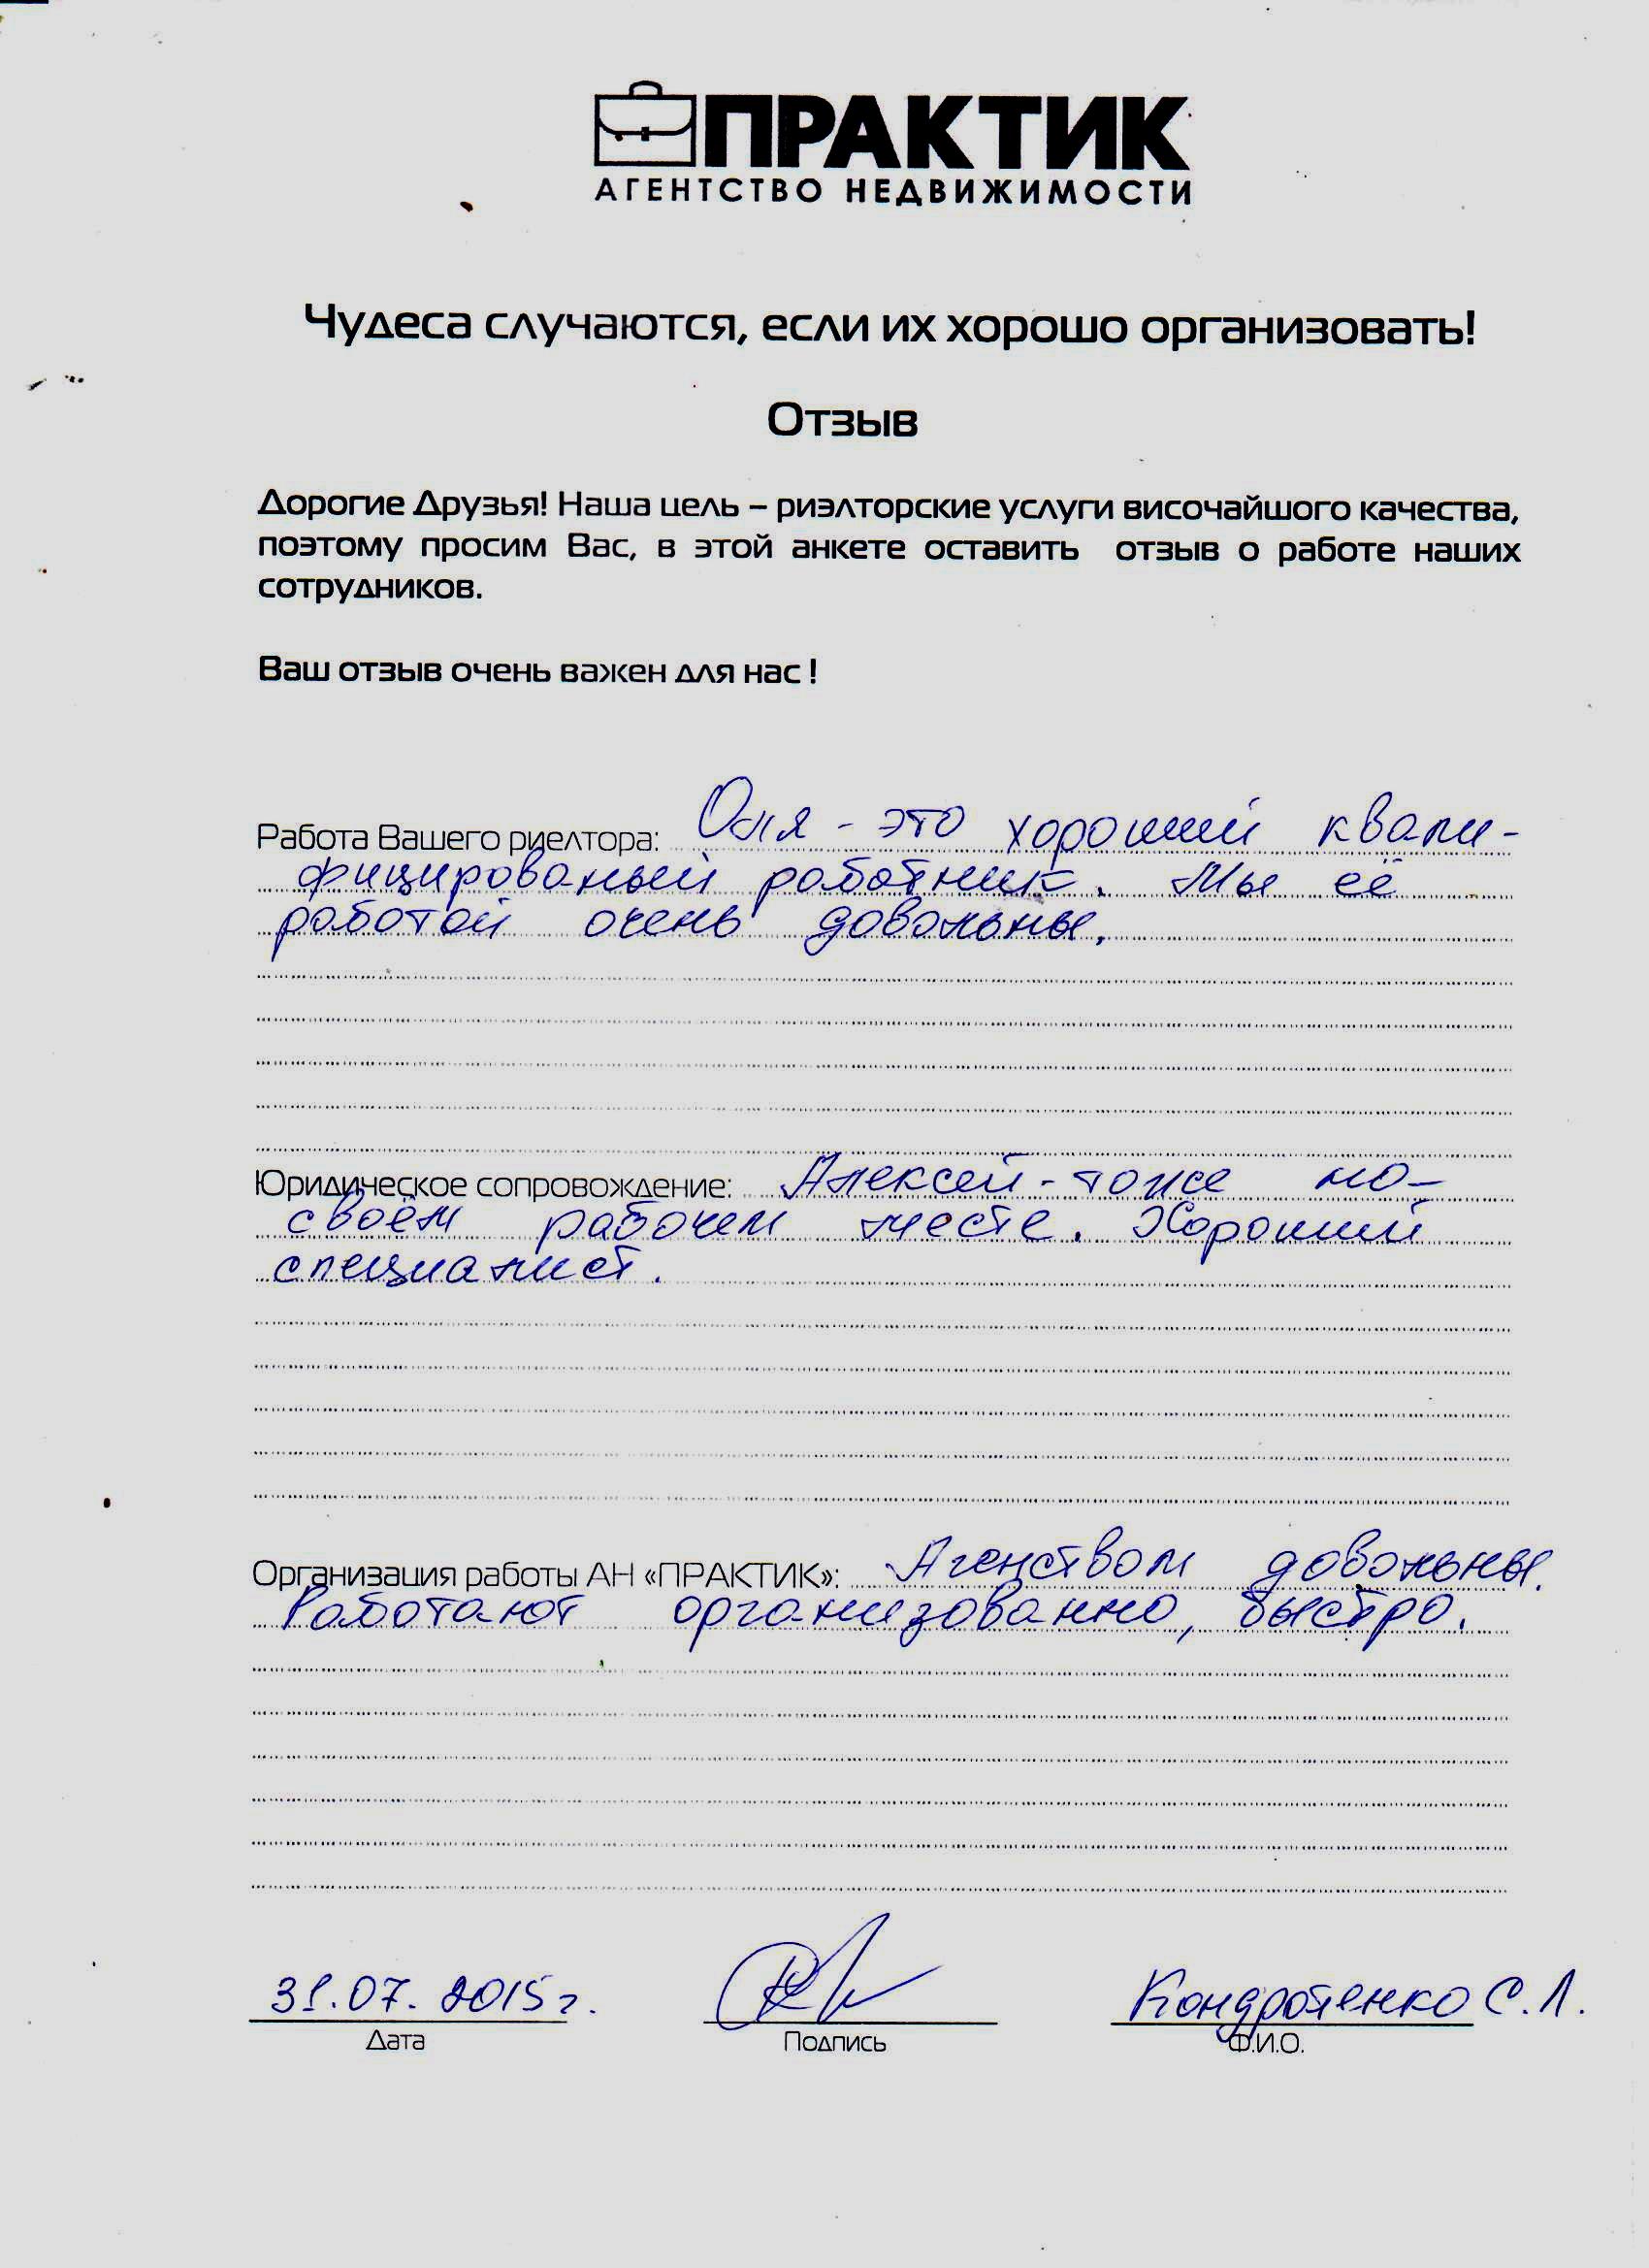 ПРАКТИК
АГЕНТСТВО НЕДВИЖИМОСТИ
Чудеса случаются, если их хорошо организовать!
Отзыв
Дорогие Друзья! Наша цель – риэлторские услуги височайшого качества,
поэтому просим Вас, в этой анкете оставить отзыв о работе наших
сотрудников.
Ваш отзыв очень важен для нас !
Работа Вашего риелтора: Оля - это хороший квали-
фицированый работник. Мы её
работой очень довольны.
Юридическое сопровождение: Алексей - тоже на
своём рабочем месте. Хороший
специалист.
Организация работы АН «ПРАКТИК»: Агенством довольны.
Работают организованно, быстро.
31.07.2015г. Кондратенко С.Л.
Дата Подпись Ф.И.О.